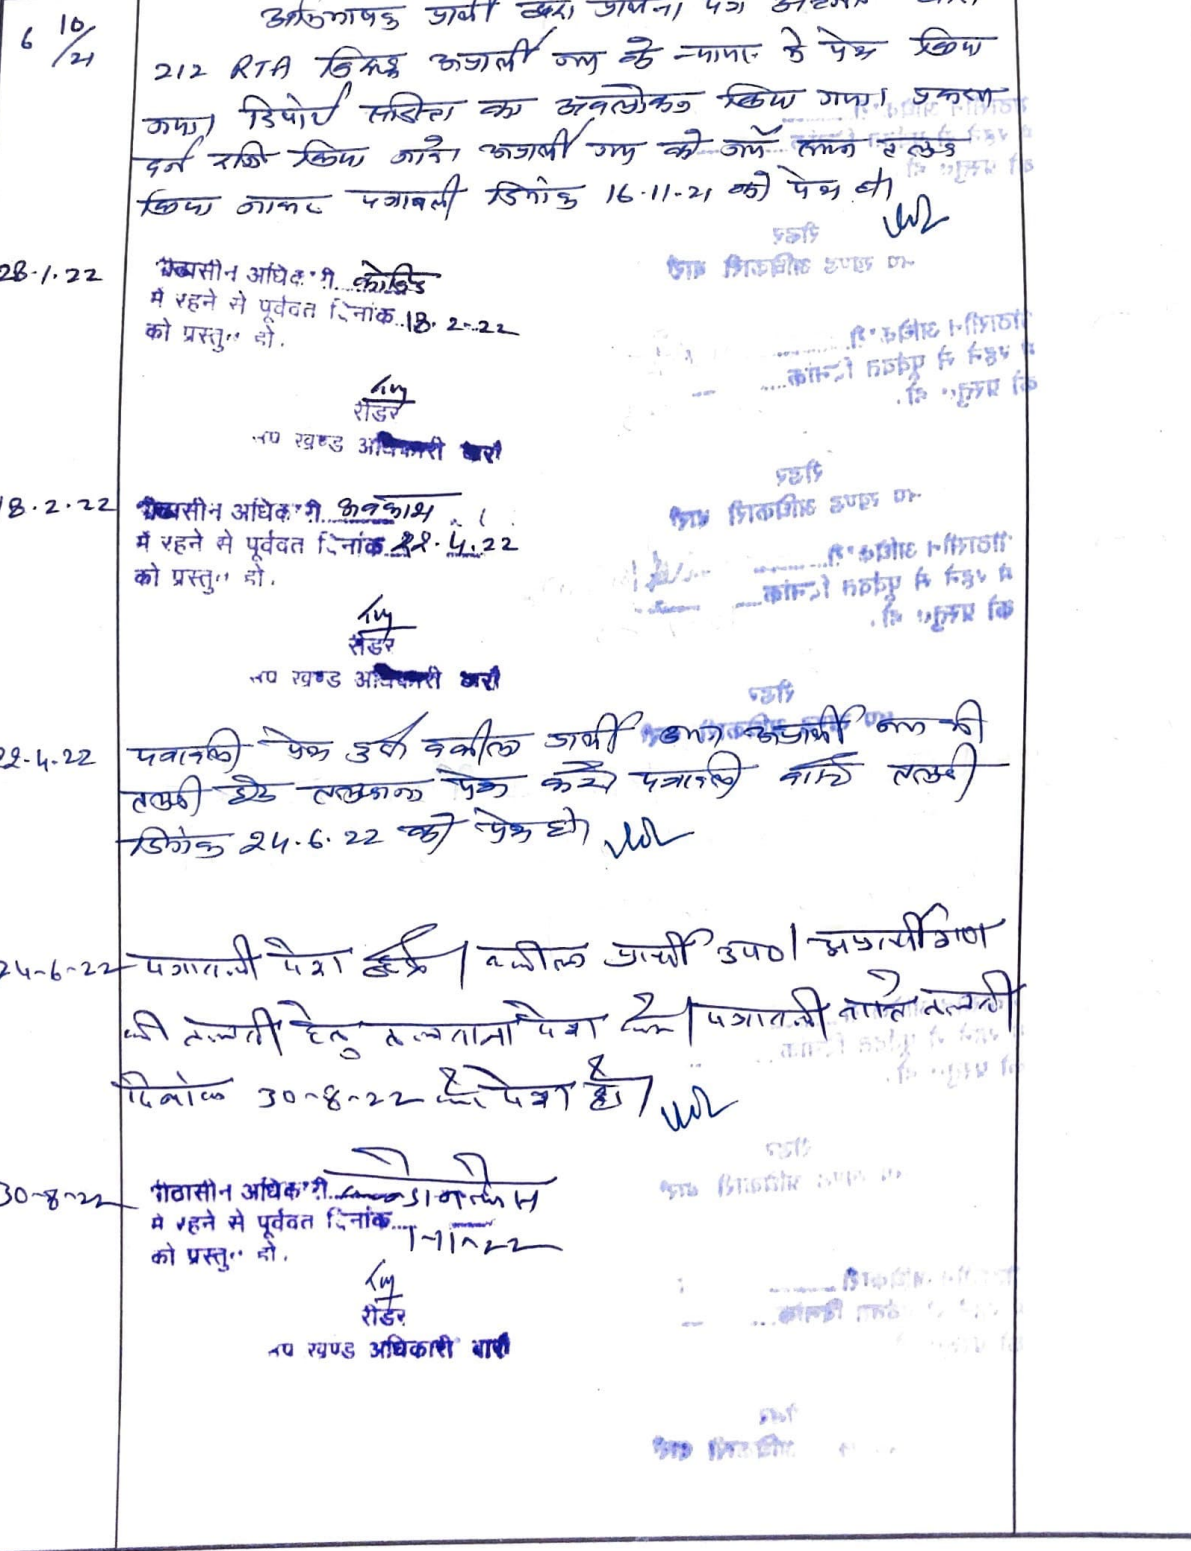 6 10/21
अभिभाषक प्रार्थी द्वारा प्रार्थना पत्र
212 RTA विरुद्ध अप्रार्थी गण के न्यायालय में पेश किया
गया। रिपोर्ट का अवलोकन किया गया। प्रकरण
दर्ज रजि किया जावे। अप्रार्थी गण को जर्ये तलब
किया जाकर पत्रावली दिनांक 16.11.21 को पेश हो।
28.1.22
पीठासीन अधिकारी कोविड
में रहने से पूर्ववत दिनांक 18.2.22
को प्रस्तुत हो.
रीडर
उप खण्ड अधिकारी बारी
18.2.22
पीठासीन अधिकारी अवकाश
में रहने से पूर्ववत दिनांक 22.4.22
को प्रस्तुत हो.
रीडर
उप खण्ड अधिकारी बारी
22.4.22
पत्रावली पेश हुई वकील प्रार्थी अप्रार्थी गण की
तलबी हेतु तलबाना पेश करे पत्रावली वास्ते तलबी
दिनांक 24.6.22 को पेश हो।
24-6-22
पत्रावली पेश हुई। वकील प्रार्थी उप०। अप्रार्थीगण
की तलबी हेतु तलबाना पेश करे। पत्रावली वास्ते तलबी
दिनांक 30-8-22 को पेश हो।
30-8-22
पीठासीन अधिकारी
में रहने से पूर्ववत दिनांक 1-11-22
को प्रस्तुत हो.
रीडर
उप खण्ड अधिकारी बारी